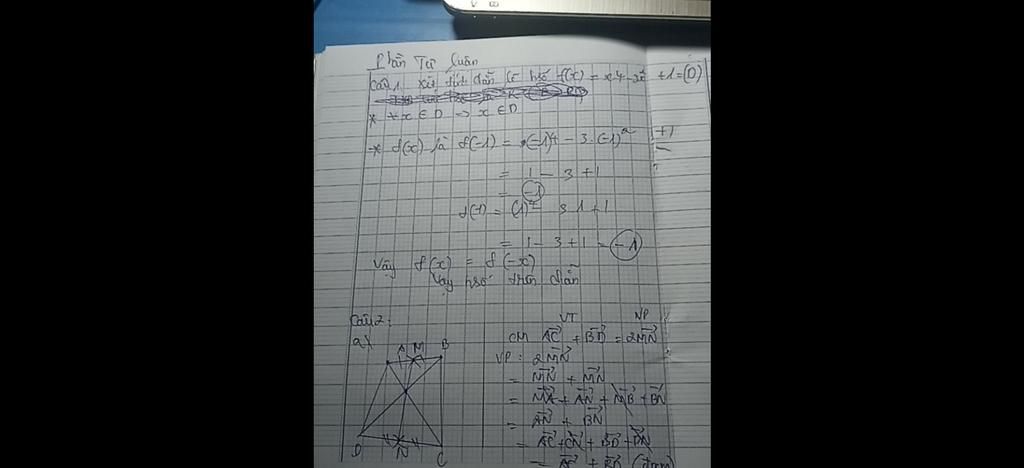 Phần Tự luận
Câu 1 Xét tính chẵn lẻ hsố f(x) = x4 - 3x² + 1 = (D)
* ∀x ∈ D → x ∈ D
* f(x) là f(-1) = (-1)4 - 3.(-1)² + 1
= 1 - 3 + 1
= -1
= 1 - 3 + 1 = -1
Vậy f(x) = f(-x)
Vậy hsố trên chẵn
Câu 2:
a)
A M B
D N C
VT VP
CM AC + BD = 2MN
VP: 2MN
= MN + MN
= MA + AN + MB + BN
= AN + BN
= AC + CN + BD + DN
= AC + BD (đpcm)